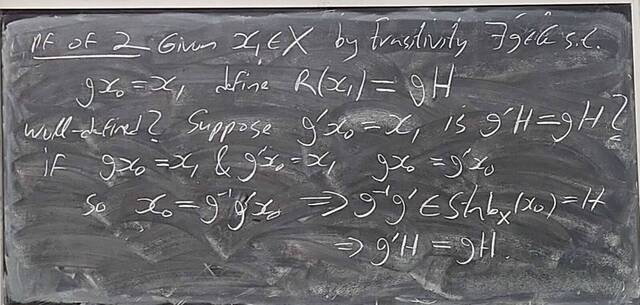 Pf of 2 Given x₁∈X by trasitivity ∃g∈G s.t.
gx₀=x₁ define R(x₁)=gH
well-defined? Suppose g'x₀=x₁ is g'H=gH?
if gx₀=x₁ & g'x₀=x₁ gx₀=g'x₀
so x₀=g⁻¹g'x₀ ⇒ g⁻¹g'∈Stab_X(x₀)=H
⇒ g'H=gH.